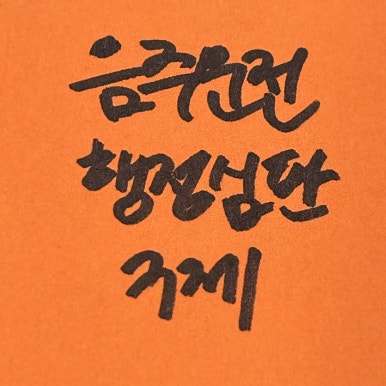 음주운전
행정심판
구제